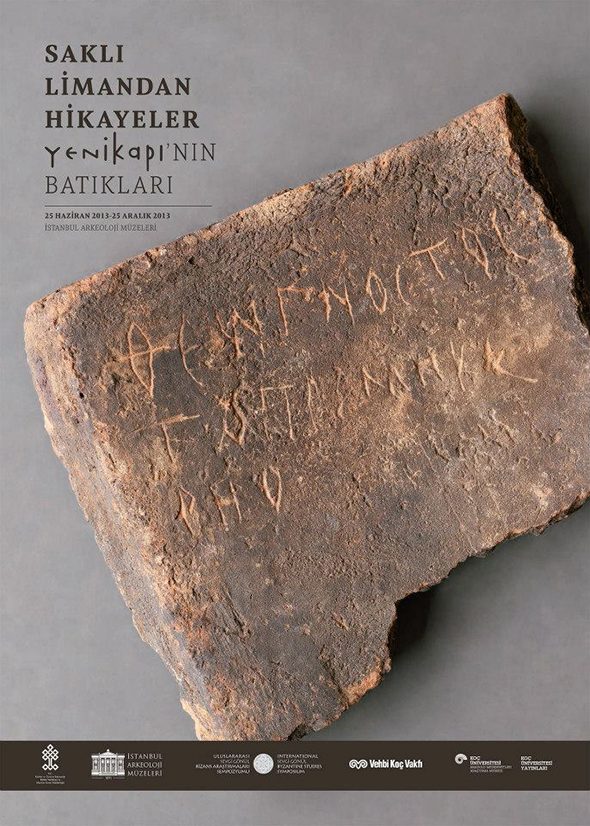 SAKLI
LİMANDAN
HİKAYELER
yenikapı'NIN
BATIKLARI
25 HAZİRAN 2013-25 ARALIK 2013
İSTANBUL ARKEOLOJİ MÜZELERİ
ΘΕѠΓΝΟϹΤΟϹ
İSTANBUL
ARKEOLOJİ
MÜZELERİ
ULUSLARARASI
SEVGİ GÖNÜL
BİZANS ARAŞTIRMALARI
SEMPOZYUMU
INTERNATIONAL
SEVGİ GÖNÜL
BYZANTINE STUDIES
SYMPOSIUM
Vehbi Koç Vakfı
KOÇ
ÜNİVERSİTESİ
ANADOLU MEDENİYETLERİ
ARAŞTIRMA MERKEZİ
KOÇ
ÜNİVERSİTESİ
YAYINLARI